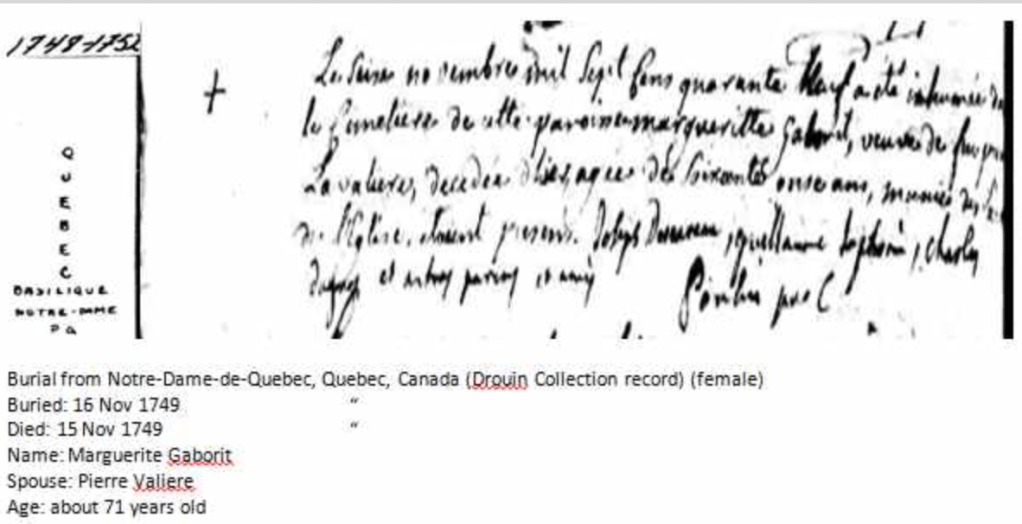 1748-1752
QUEBEC
BASILIQUE
NOTRE-DAME
PQ
Le Seise novembre mil Sept Cens quarante Neuf a été inhumée da
le Cimetiere de cette paroisse margueritte Gaborit, veuve de feu pier
Lavaliere, decedée d'hier, agée de Soixante onse ans, munie des
de l'Eglise, etoient presens. Joseph , guillaume , charles
et autres parens et amis
Burial from Notre-Dame-de-Quebec, Quebec, Canada (Drouin Collection record) (female)
Buried: 16 Nov 1749 "
Died: 15 Nov 1749 "
Name: Marguerite Gaborit
Spouse: Pierre Valiere
Age: about 71 years old